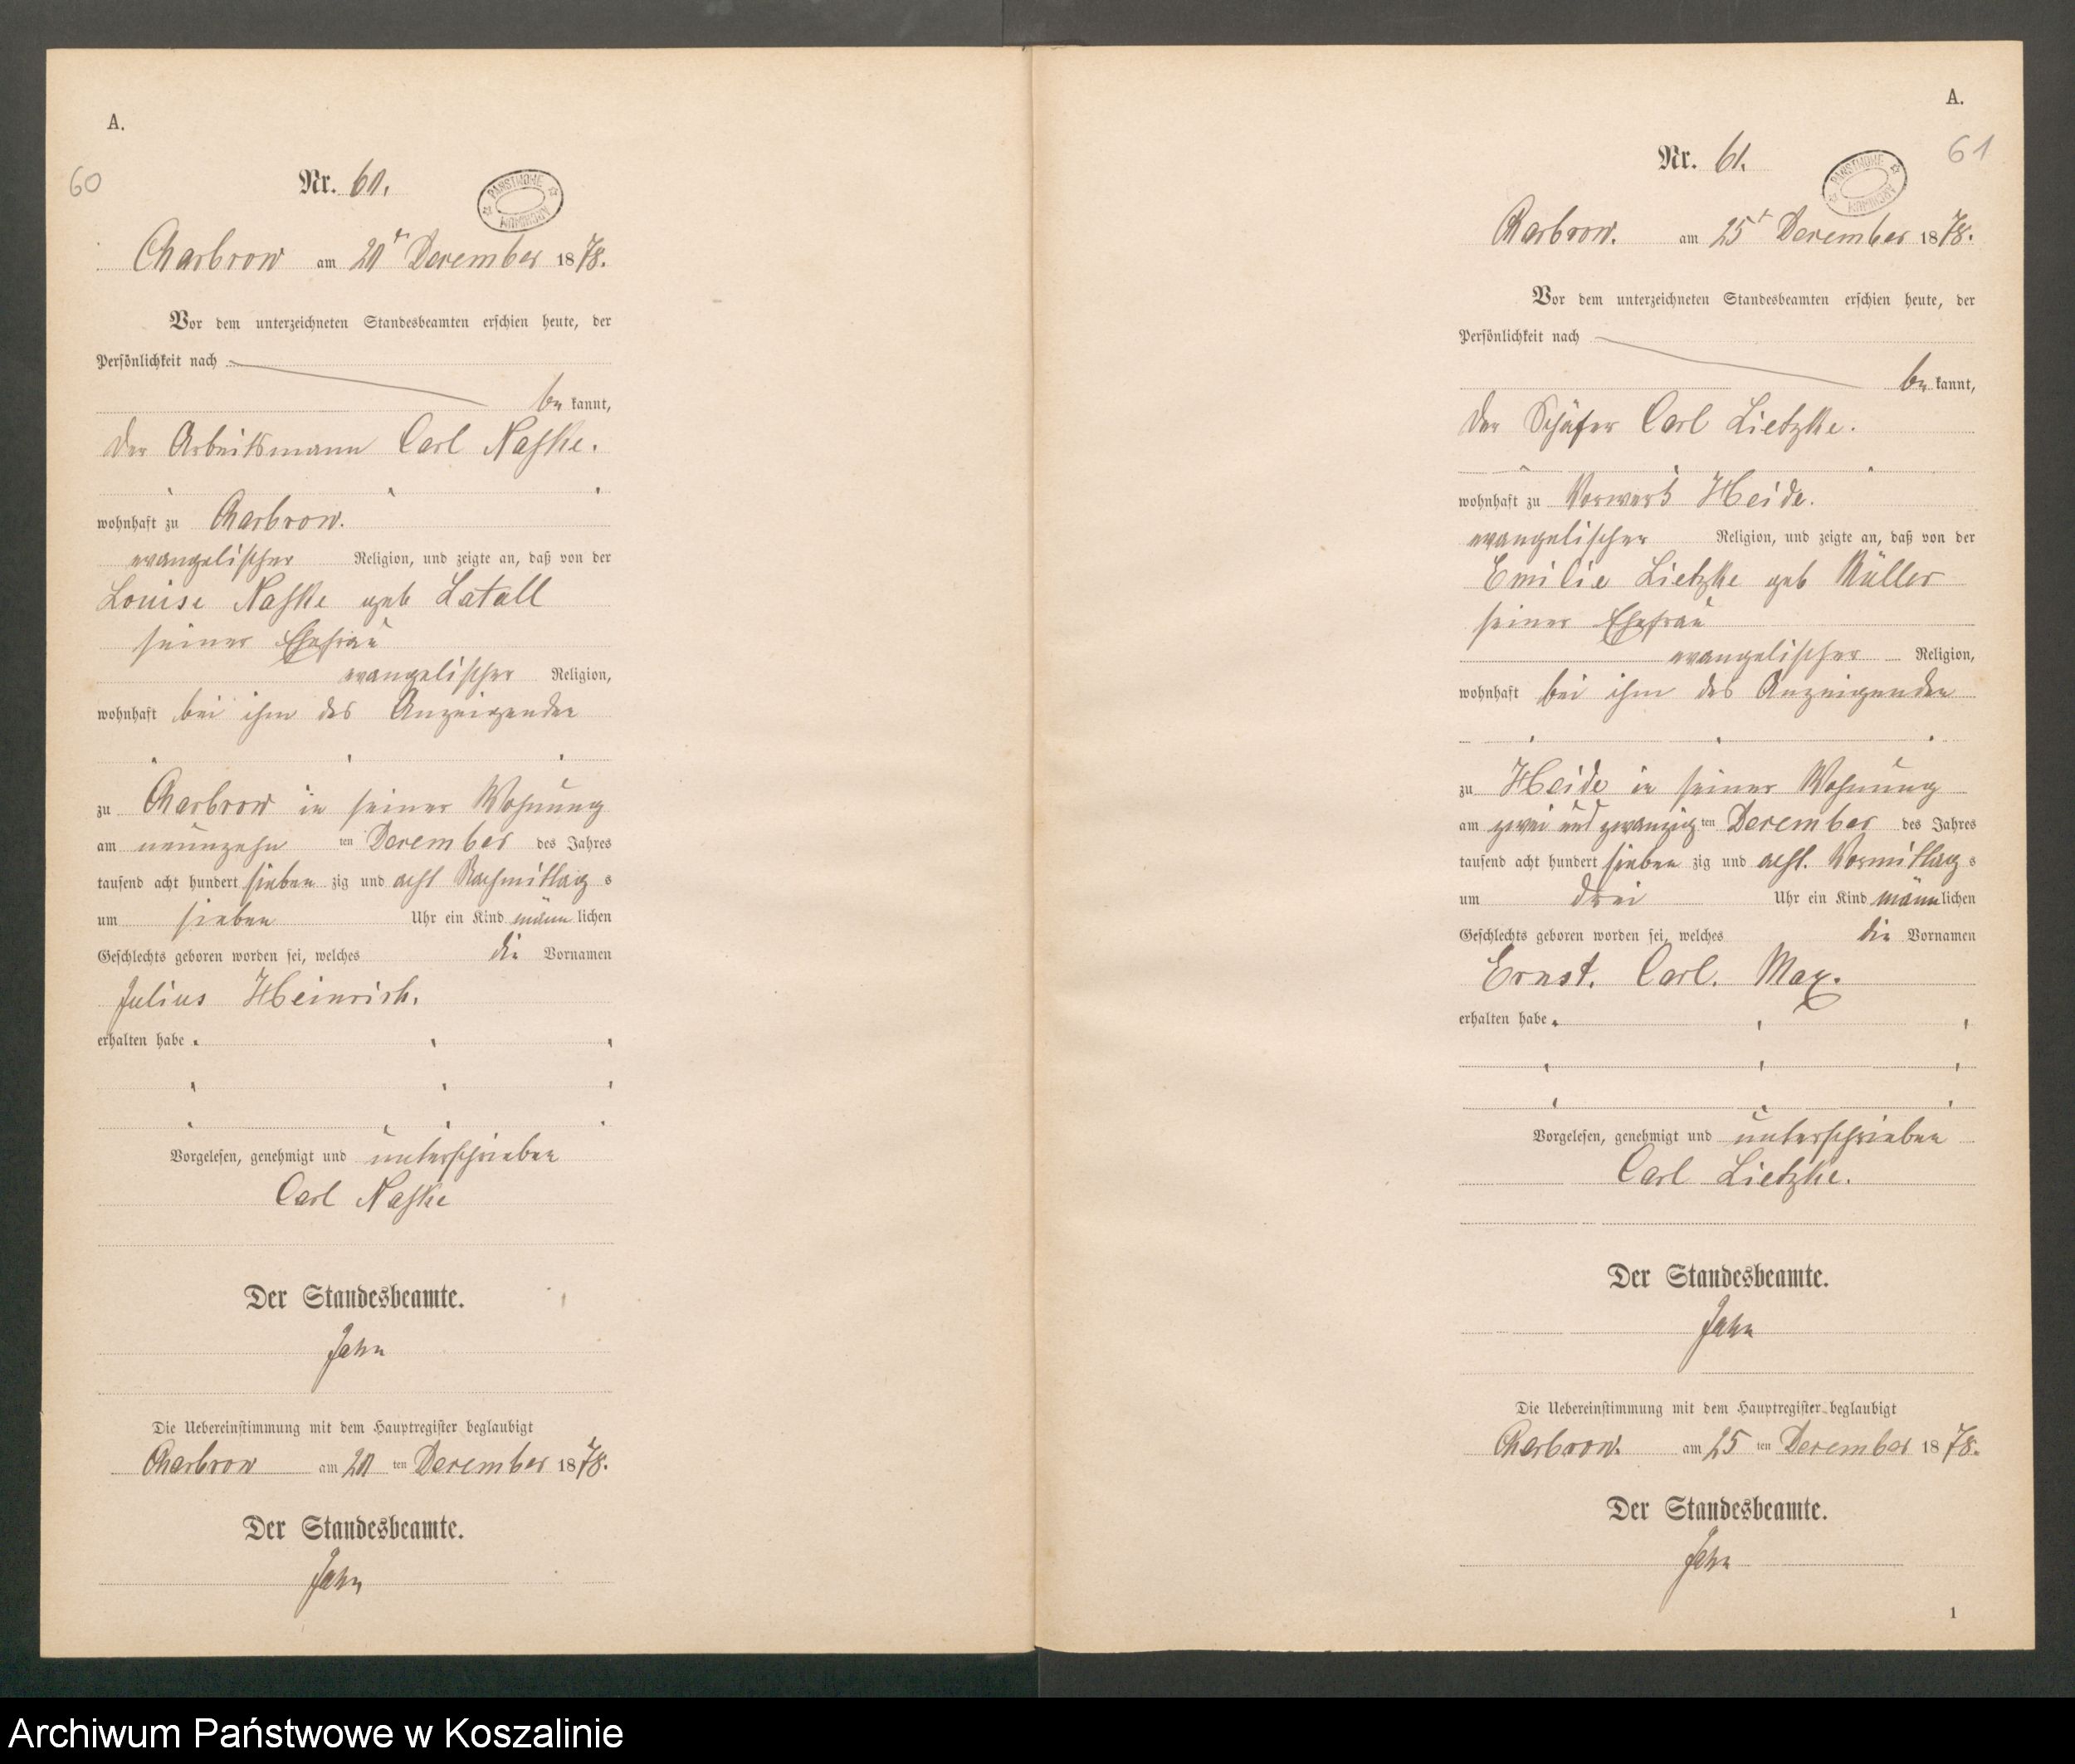 A.
60
Nr. 60.
PAŃSTWOWE ARCHIWUM
Charbrow am 20t December 1878.
Vor dem unterzeichneten Standesbeamten erschien heute, der
Persönlichkeit nach
be kannt,
der Arbeitsmann Carl Naſske.
wohnhaft zu Charbrow.
evangelischer Religion, und zeigte an, daß von der
Louise Naſske geb Latall
seiner Ehefrau
evangelischer Religion,
wohnhaft bei ihm des Anzeigenden
zu Charbrow in seiner Wohnung
am neunzehn ten December des Jahres
tausend acht hundert sieben zig und acht Nachmittag s
um sieben Uhr ein Kind männ lichen
Geschlechts geboren worden sei, welches die Vornamen
Julius Heinrich.
erhalten habe.
Vorgelesen, genehmigt und unterschrieben
Carl Naſske
Der Standesbeamte.
Jahn
Die Uebereinstimmung mit dem Hauptregister beglaubigt
Charbrow am 20 ten December 1878.
Der Standesbeamte.
Jahn
A.
61
Nr. 61.
PAŃSTWOWE ARCHIWUM
Charbrow. am 25t December 1878.
Vor dem unterzeichneten Standesbeamten erschien heute, der
Persönlichkeit nach
be kannt,
der Schäfer Carl Lietzke.
wohnhaft zu Vorwerk Heide.
evangelischer Religion, und zeigte an, daß von der
Emilie Lietzke geb Müller
seiner Ehefrau
evangelischer Religion,
wohnhaft bei ihm des Anzeigenden
zu Heide in seiner Wohnung
am zwei und zwanzig ten December des Jahres
tausend acht hundert sieben zig und acht. Vormittag s
um drei Uhr ein Kind männ lichen
Geschlechts geboren worden sei, welches die Vornamen
Ernst. Carl. Max.
erhalten habe.
Vorgelesen, genehmigt und unterschrieben
Carl Lietzke.
Der Standesbeamte.
Jahn
Die Uebereinstimmung mit dem Hauptregister beglaubigt
Charbrow. am 25 ten December 1878.
Der Standesbeamte.
Jahn
1
Archiwum Państwowe w Koszalinie